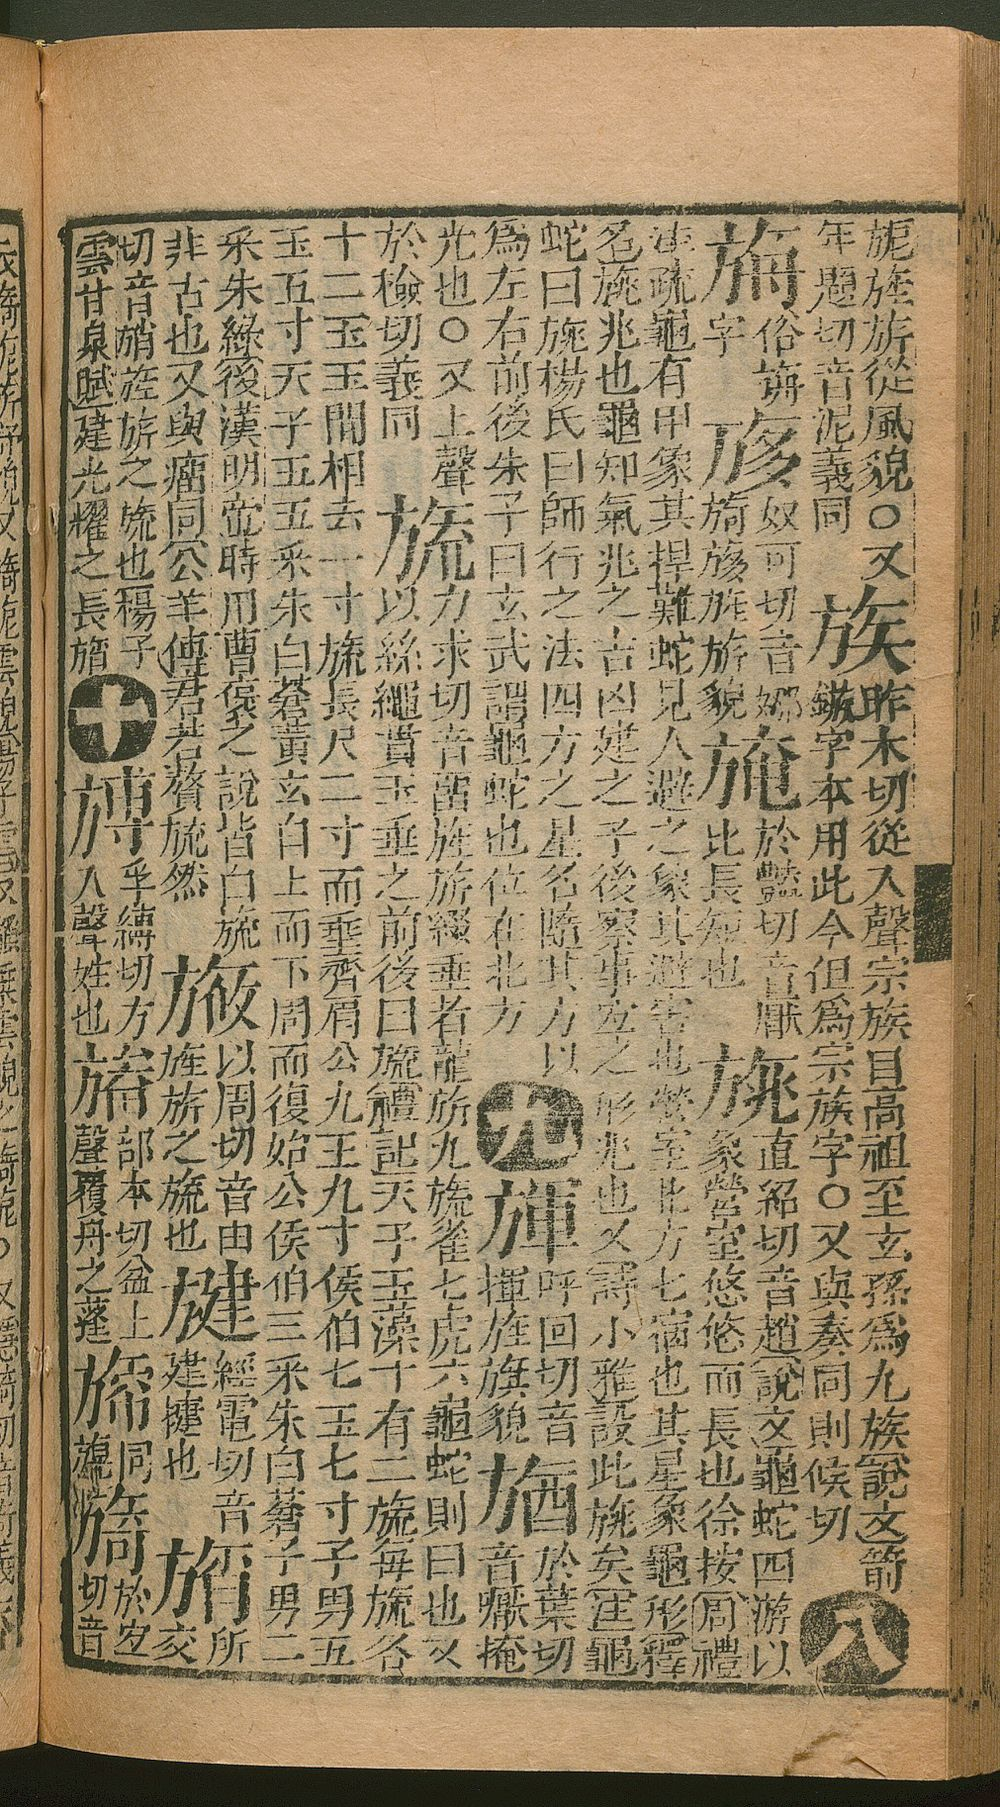 旎旌旂從風貌○又
年題切音泥義同
族
昨木切從入聲宗族自高祖至玄孫爲九族說文箭
鏃字本用此今但爲宗族字○又與奏同則候切
八
俗旃
字
奴可切音娜
旖旎旌旂貌
於豔切音厭
比長短也
旐
直紹切音趙說文龜蛇四游以
象營室悠悠而長也徐按周禮
注疏龜有甲象其捍難蛇見人避之象其避害也營室北方七宿也其星象龜形釋
名旐兆也龜知氣兆之吉凶建之于後察事宜之形兆也又詩小雅設此旐矣注龜
蛇曰旐楊氏曰師行之法四方之星名隨其方以
爲左右前後朱子曰玄武謂龜蛇也位在北方
九
呼回切音
揮旌旗貌
於葉切
音魘掩
光也○又上聲
於檢切義同
旒
力求切音留旌旂綴垂者龍旂九旒雀七虎六龜蛇則曰也又
以絲繩貫玉垂之前後曰旒禮記天子玉藻十有二旒每旒各
十二玉玉間相去一寸旒長尺二寸而垂齊肩公九玉九寸侯伯七玉七寸子男五
玉五寸天子玉五采朱白蒼黃玄白上而下周而復始公侯伯三采朱白蒼子男二
采朱綠後漢明帝時用曹褒之說皆白旒
非古也又與瘤同公羊傳君若贅旒然
以周切音由
旌旂之旒也
經電切音
建也
旓
所
交
切音梢旌旂之旒也楊子
雲甘泉賦建光耀之長旓
十
孚縛切方
入聲姓也
部本切盆上
聲覆舟之篷
同
旖
於宜
切音